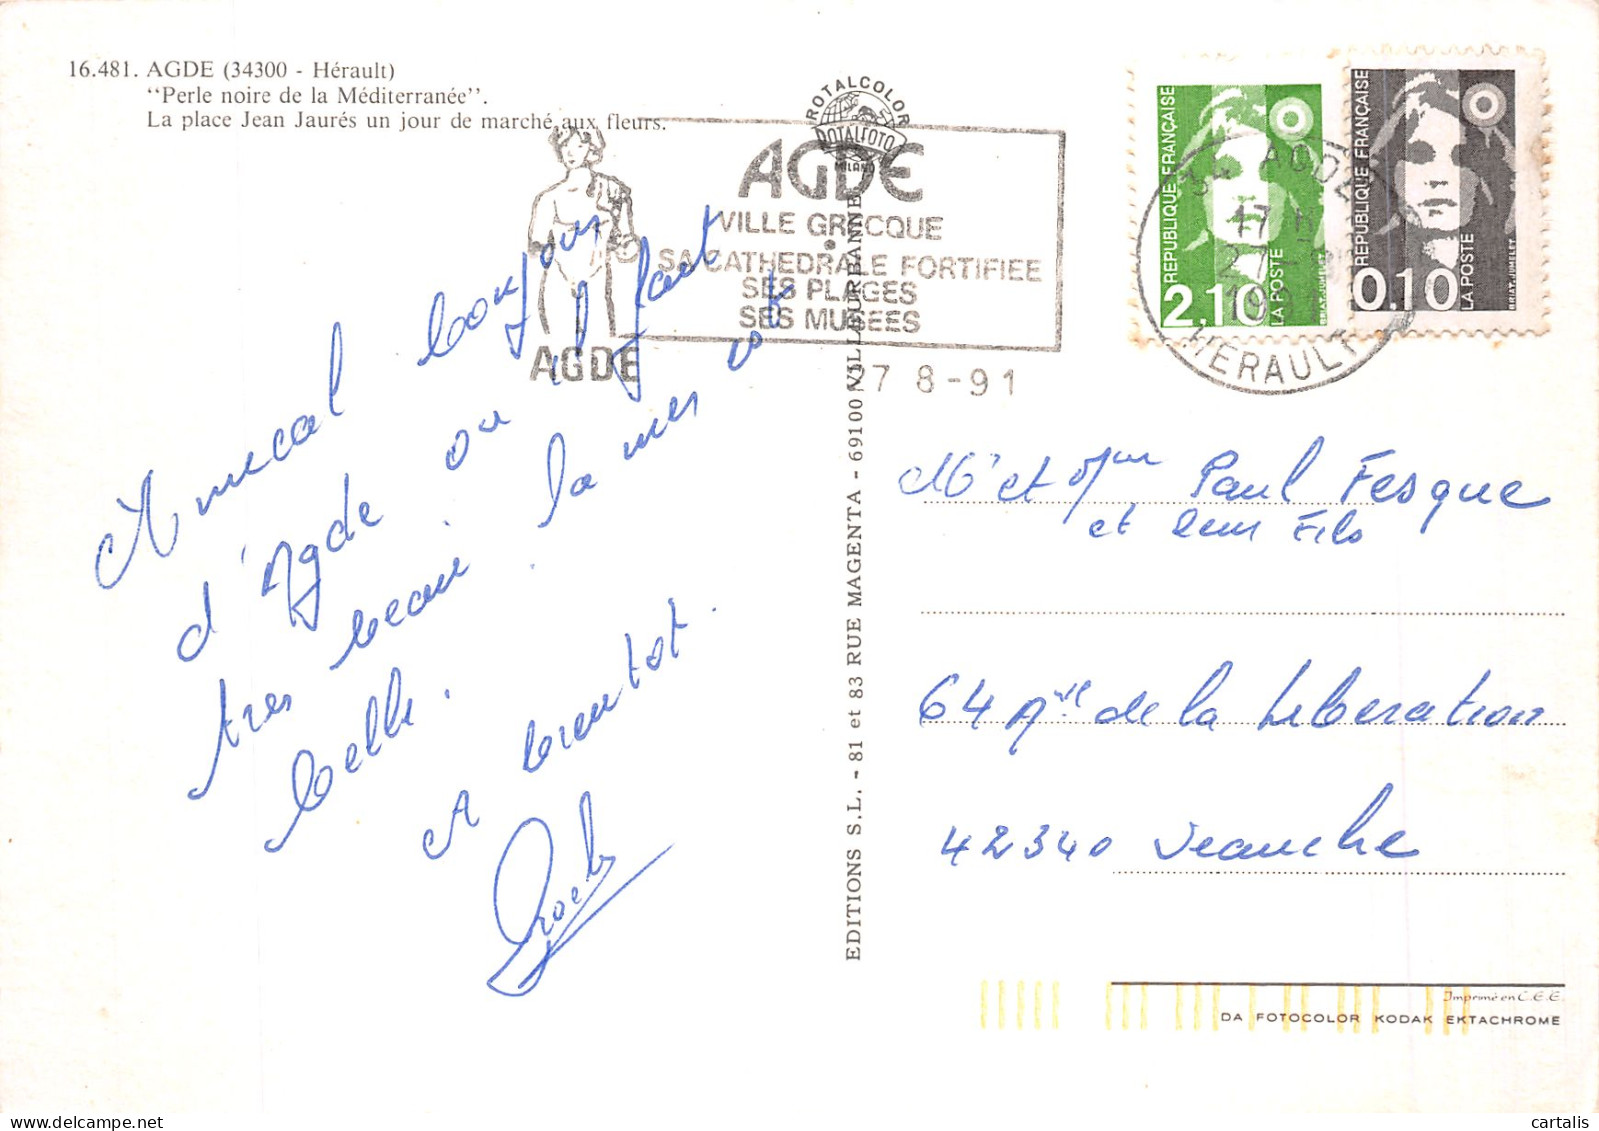 16.481. AGDE (34300 - Hérault)
"Perle noire de la Méditerranée".
La place Jean Jaurés un jour de marché aux fleurs.
ROTALCOLOR
ROTALFOTO
MILANO
AGDE
VILLE GRECQUE
SA CATHEDRALE FORTIFIEE
SES PLAGES
SES MUSEES
AGDE
27 8 - 91
REPUBLIQUE FRANÇAISE
2,10
LA POSTE
BRIAT-JUMELET
REPUBLIQUE FRANÇAISE
0,10
LA POSTE
BRIAT-JUMELET
34 AGDE
17 H
27 - 8
1991
HERAULT
Amical bonjour
d'Agde ou il fait
tres beau. la mer est
belle.
A bientot.
EDITIONS S.L. - 81 et 83 RUE MAGENTA - 69100 VILLEURBANNE
Mr et Mme Paul Fesque
et leur Fils
64 Ave de la Liberation
42340 Veauche
Imprimé en C.E.E.
DA FOTOCOLOR KODAK EKTACHROME
cartalis